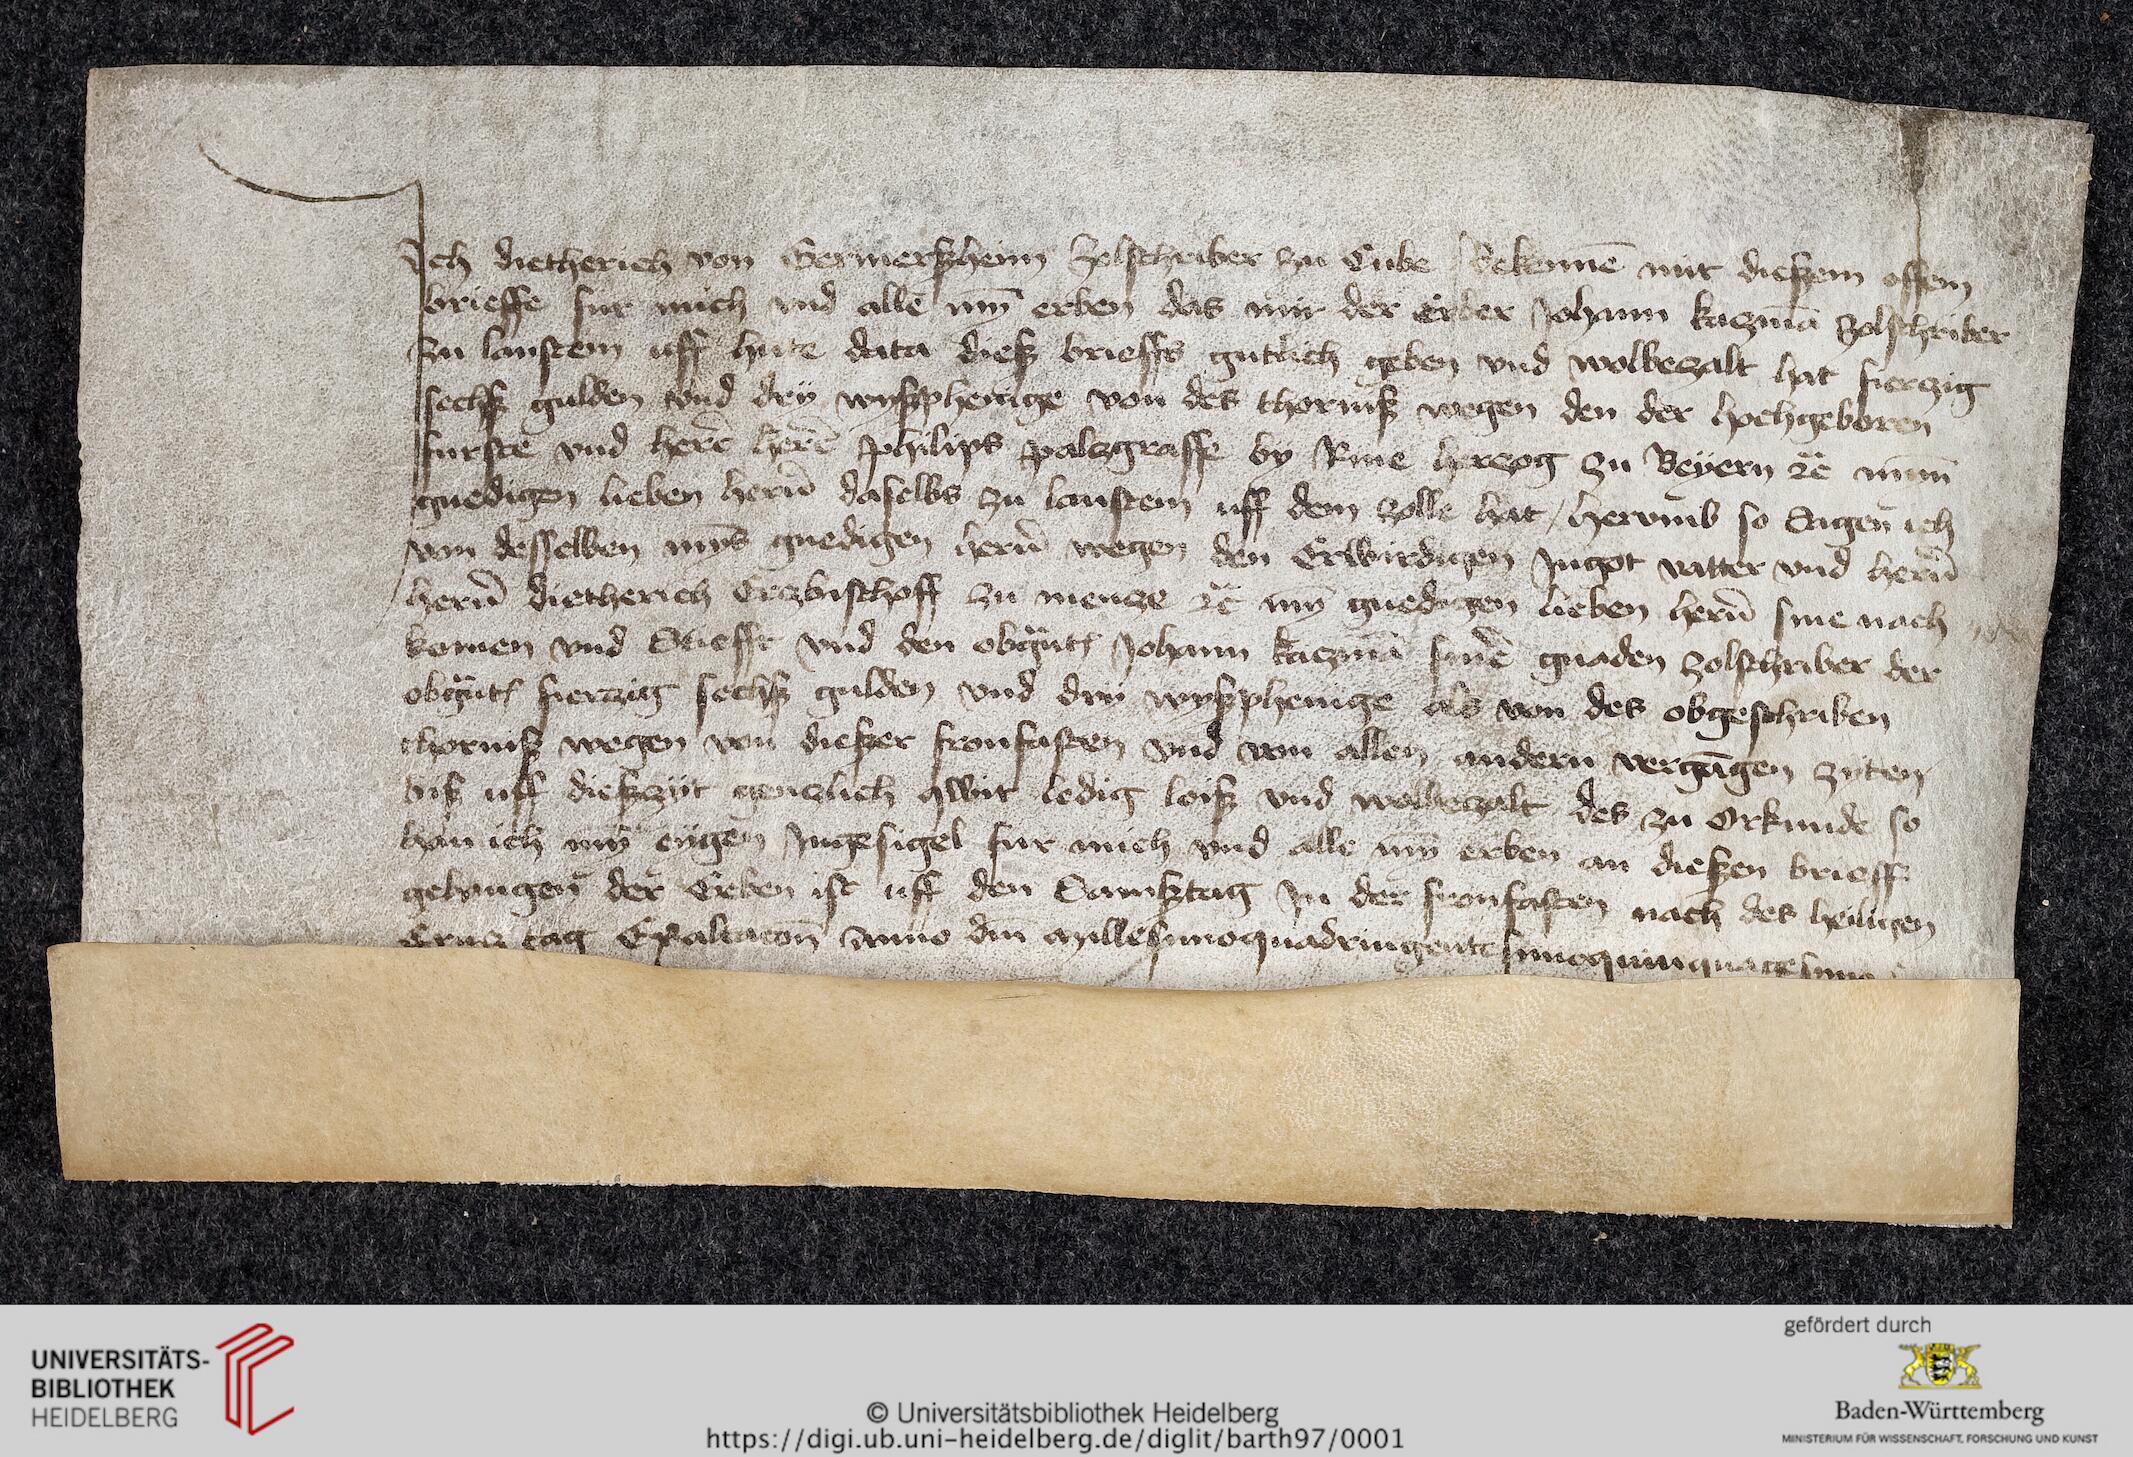 Ich dietherich von Germerßheim zolschriber zu Cube Bekenne͞ mit dießem offem
brieffe fur mich vnd alle͞ myn͞ erben das mir der Erber Johann katzma͞ zolschriber
zu lanstem uff hute data dieß brieffs gutlich geben vnd wolbezalt hat fierzig
sechß gulden vnd dry wyßphenige von des thorniß wegen den der hochgeboren
furste vnd here͞ here͞ philips paltzgraffe by Rine hertzog zu Beyern ꝛc͞ mynn͞
gnedigen lieben hern͞ daselbs zu lanstem uff dem zolle hat / hervmb so Sagen ich
von desselben myns͞ gnedigen hern͞ wegen den Erwirdigen Ingot vatter vnd hern͞
hern͞ dietherich Ertzbischoff zu mentze ꝛc͞ myn͞ gnedigen lieben hern͞ sine nach
komen vnd Stiefft vnd den obgn͞t Johann katzma͞ sine͞ gnaden zolschriber der
obgn͞t fierzig sechß gulden vnd dry wyßphenige als von des obgeschriben
thorniß wegen von dießer fronfasten vnd von allen andern verga͞gen zyten
biß uff dießzyt gentzlich qwit ledig loiß vnd wolbezalt des zu Orkunde so
han ich myn͞ eygen Ingesigel fur mich vnd alle myn͞ erben an dießen brieff
gehangen der Geben ist uff den Samßtag In der fronfasten nach des heiligen
Crutz tag Exaltacon͞ Anno dm͞ millesimoquadringentesimoquinquagesimo
UNIVERSITÄTS-
BIBLIOTHEK
HEIDELBERG
© Universitätsbibliothek Heidelberg
https://digi.ub.uni-heidelberg.de/diglit/barth97/0001
gefördert durch
Baden-Württemberg
MINISTERIUM FÜR WISSENSCHAFT, FORSCHUNG UND KUNST